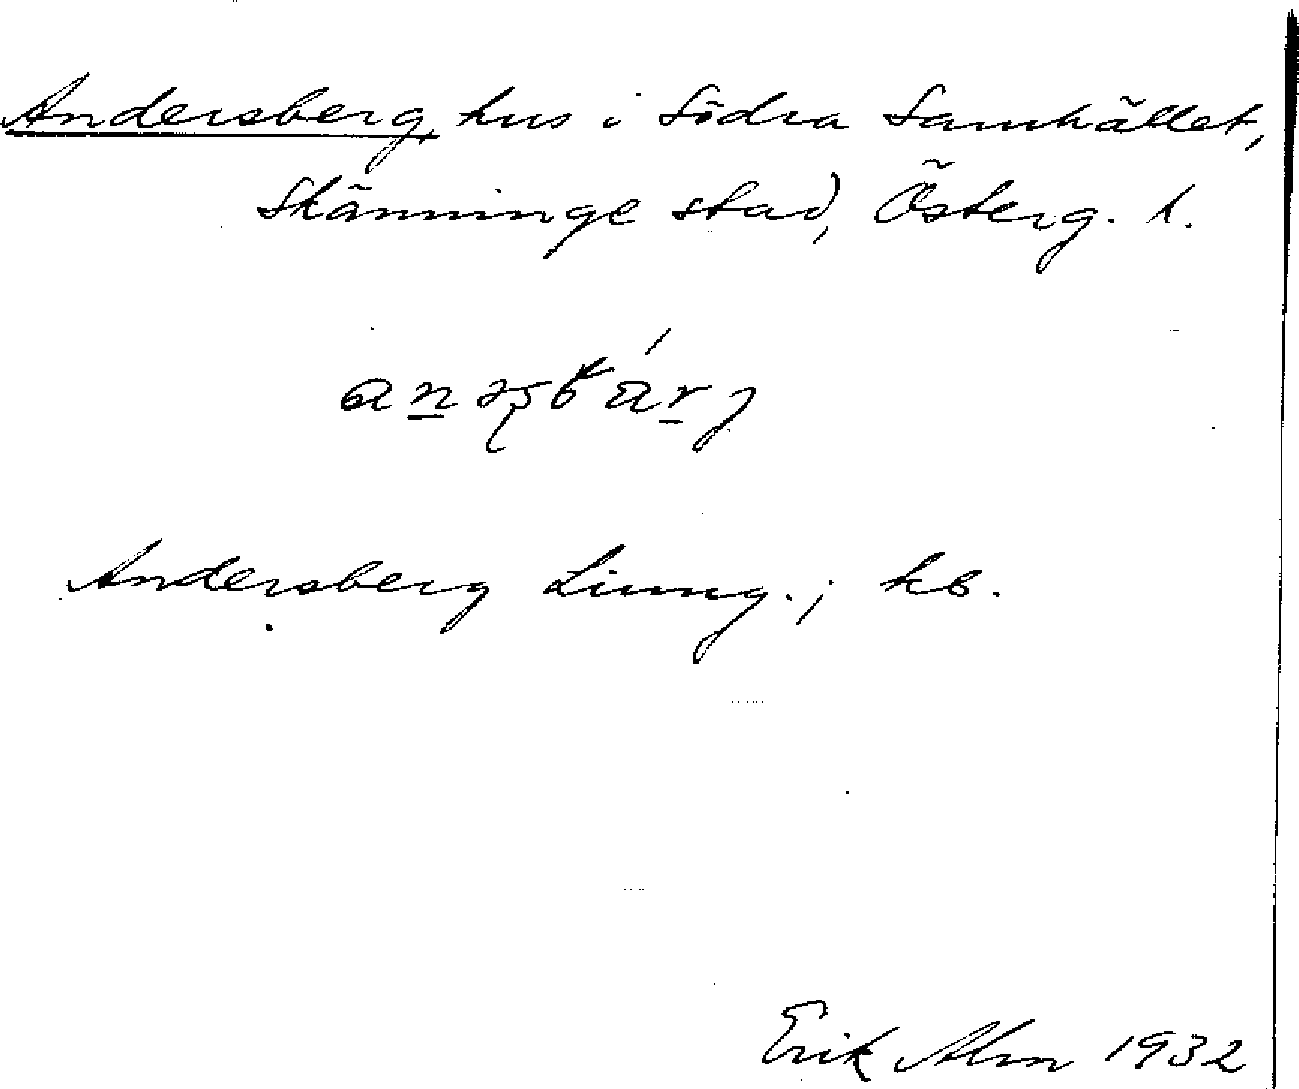 Andersberg, hus i Södra Samhället,
Skänninge stad, Österg. l.
Andersberg Ljung.; kb.
Erik Alm 1932